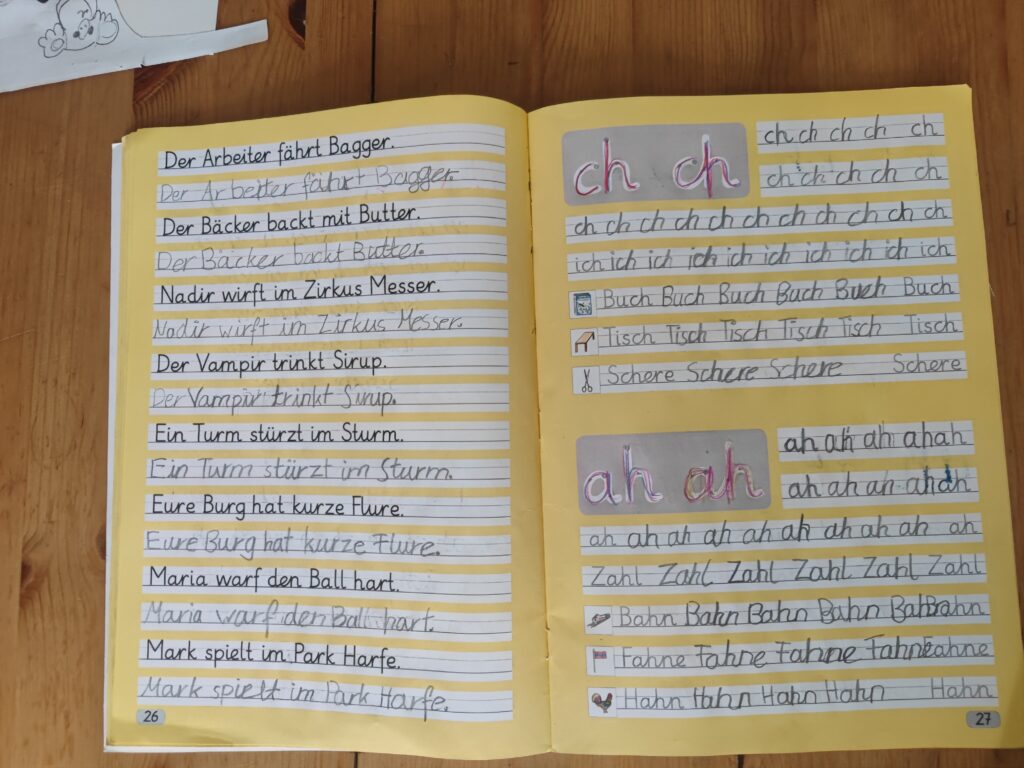 Der Arbeiter fährt Bagger.
Der Arbeiter fährt Bagger.
Der Bäcker backt mit Butter.
Der Bäcker backt Butter.
Nadir wirft im Zirkus Messer.
Nadir wirft im Zirkus Messer.
Der Vampir trinkt Sirup.
Der Vampir trinkt Sirup.
Ein Turm stürzt im Sturm.
Ein Turm stürzt im Sturm.
Eure Burg hat kurze Flure.
Eure Burg hat kurze Flure.
Maria warf den Ball hart.
Maria warf den Ball hart.
Mark spielt im Park Harfe.
Mark spielt im Park Harfe.
26
ch ch
ch ch ch ch ch
ch ch ch ch ch
ch ch ch ch ch ch ch ch ch ch ch
ich ich ich ich ich ich ich ich ich ich
Buch Buch Buch Buch Buch Buch
Tisch Tisch Tisch Tisch Tisch Tisch
Schere Schere Schere Schere
ah ah
ah ah ah ah ah
ah ah ah ah ah
ah ah ah ah ah ah ah ah ah ah
Zahl Zahl Zahl Zahl Zahl Zahl
Bahn Bahn Bahn Bahn Bahn Bahn
Fahne Fahne Fahne Fahne Fahne
Hahn Hahn Hahn Hahn Hahn
27